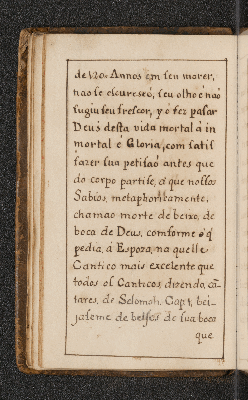 de 120. Annos em seu morer,
não se escureseó, seu olho é não
fugiu seu frescor, y o fez pasar
Deus desta vida mortal á in
mortal é Gloria, com satis
fazer sua petisaó antes que
do corpo partise, á que nossos
Sabios, metaphoricamente,
chamao morte de beixo, de
boca de Deus, comforme o q̃
pedia, á Espoza, na quelle
Cantico mais excelente que
todos os Canticos, dizendo, cã-
tares, de Selomoh, Cap 1, bei-
jaseme de beijos de sua boca
que